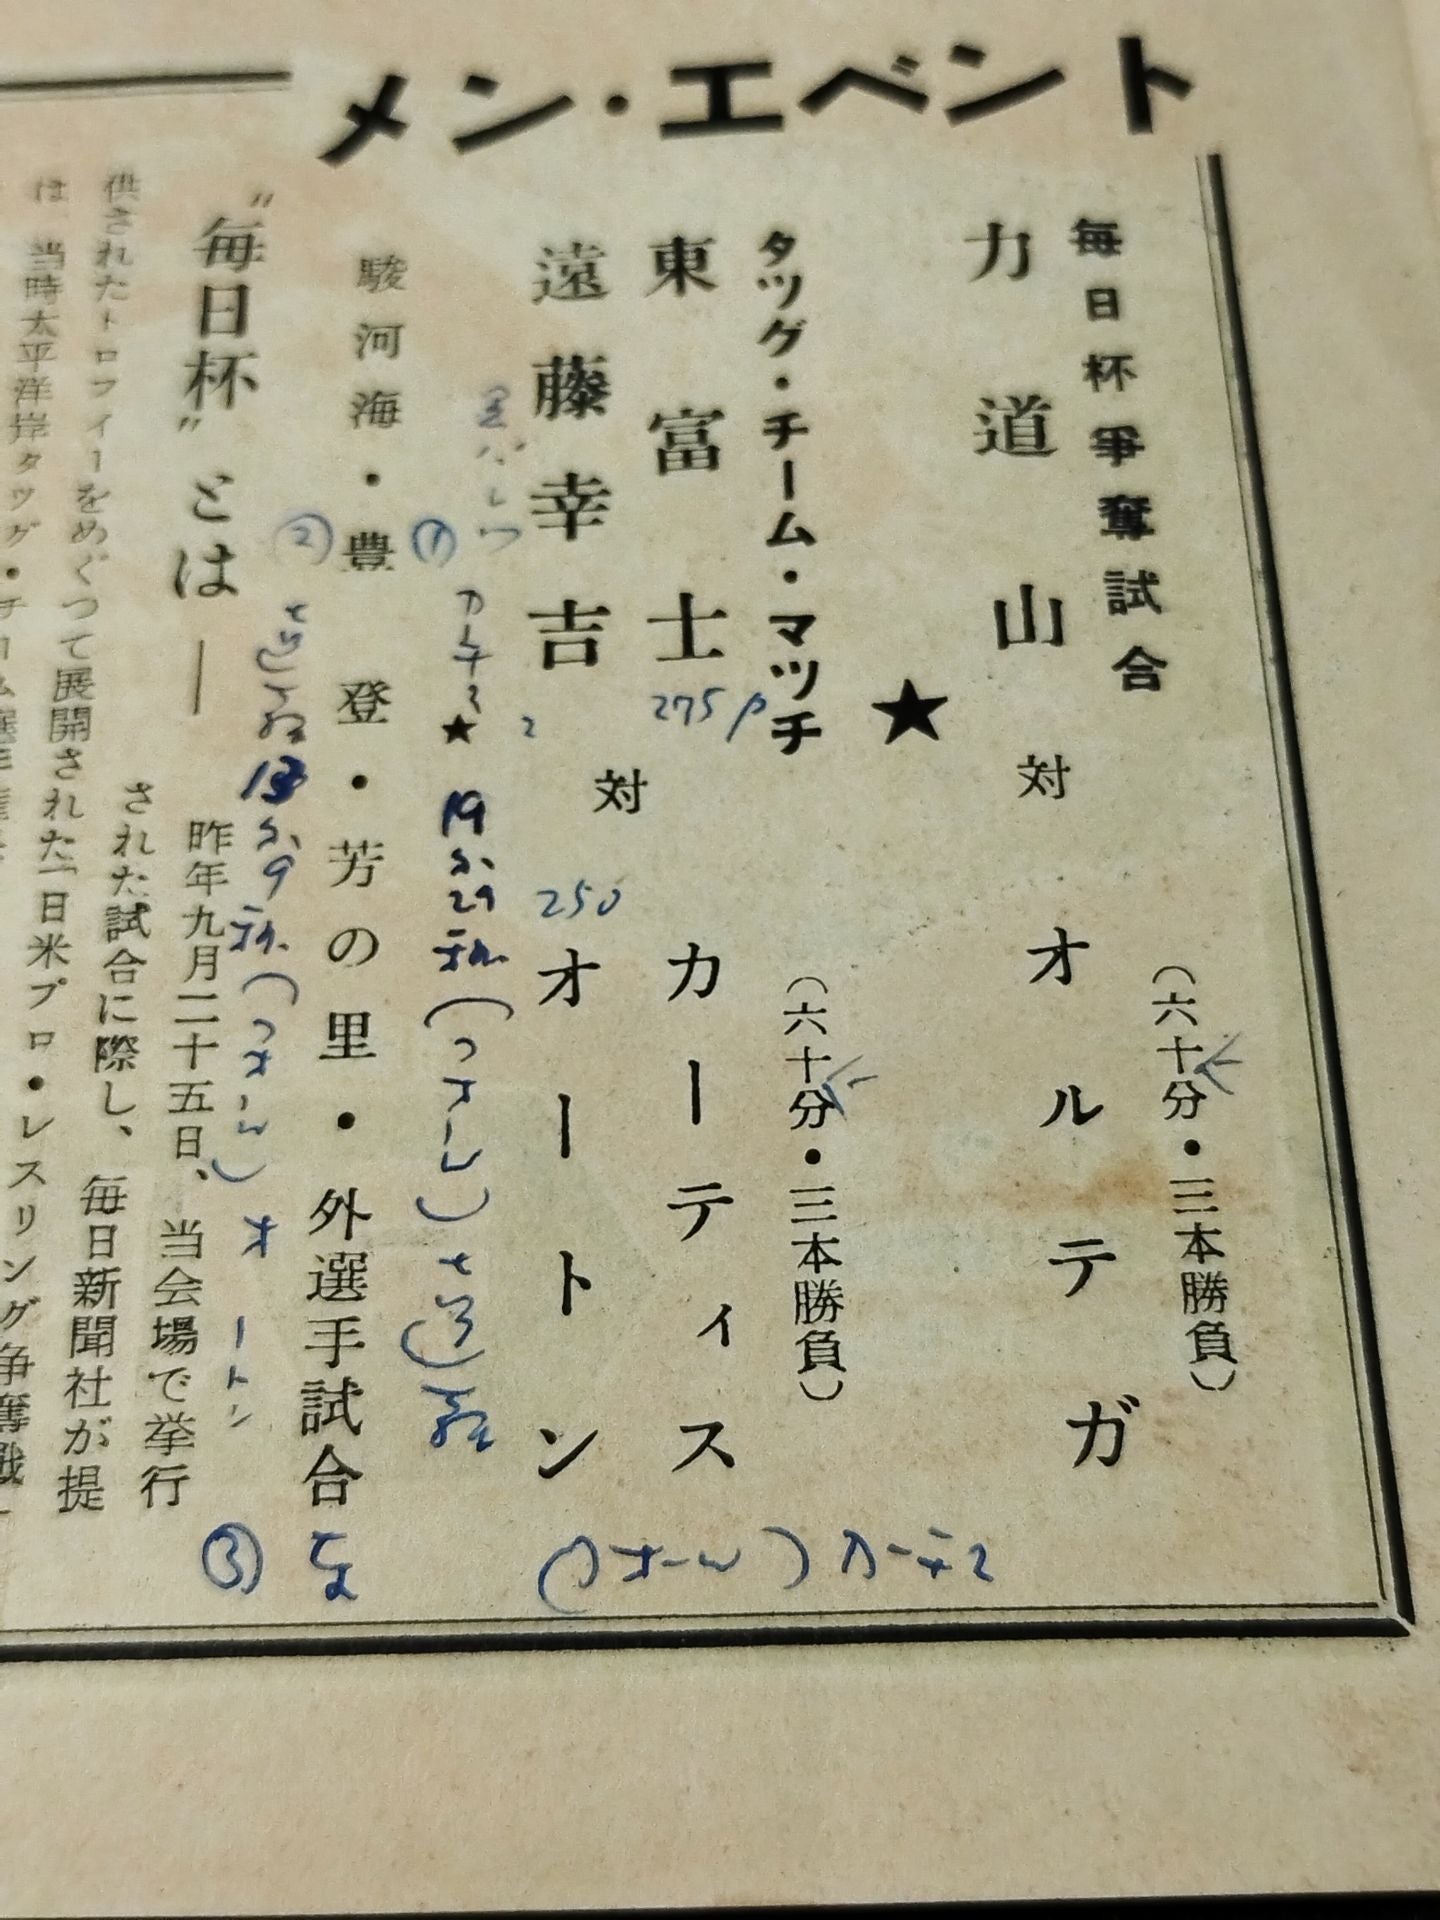 メン・エベント
毎日杯爭奪試合
(六十分・三本勝負)
力道山 対 オルテガ
★
タツグ・チーム・マツチ
(六十分・三本勝負)
東富士
遠藤幸吉
対
カーティス
オートン
275
250
2
①
★
19分29秒(フォール)
駿河海・豊登・芳の里・外選手試合
②
13分9秒(フォール)オートン
③
(フォール)カーチス
"毎日杯"とは―
昨年九月二十五日、当会場で挙行
された試合に際し、毎日新聞社が提
供されたトロフィーをめぐつて展開された「日米プロ・レスリング争奪戦
は、当時太平洋岸タツグ・チーム選手権